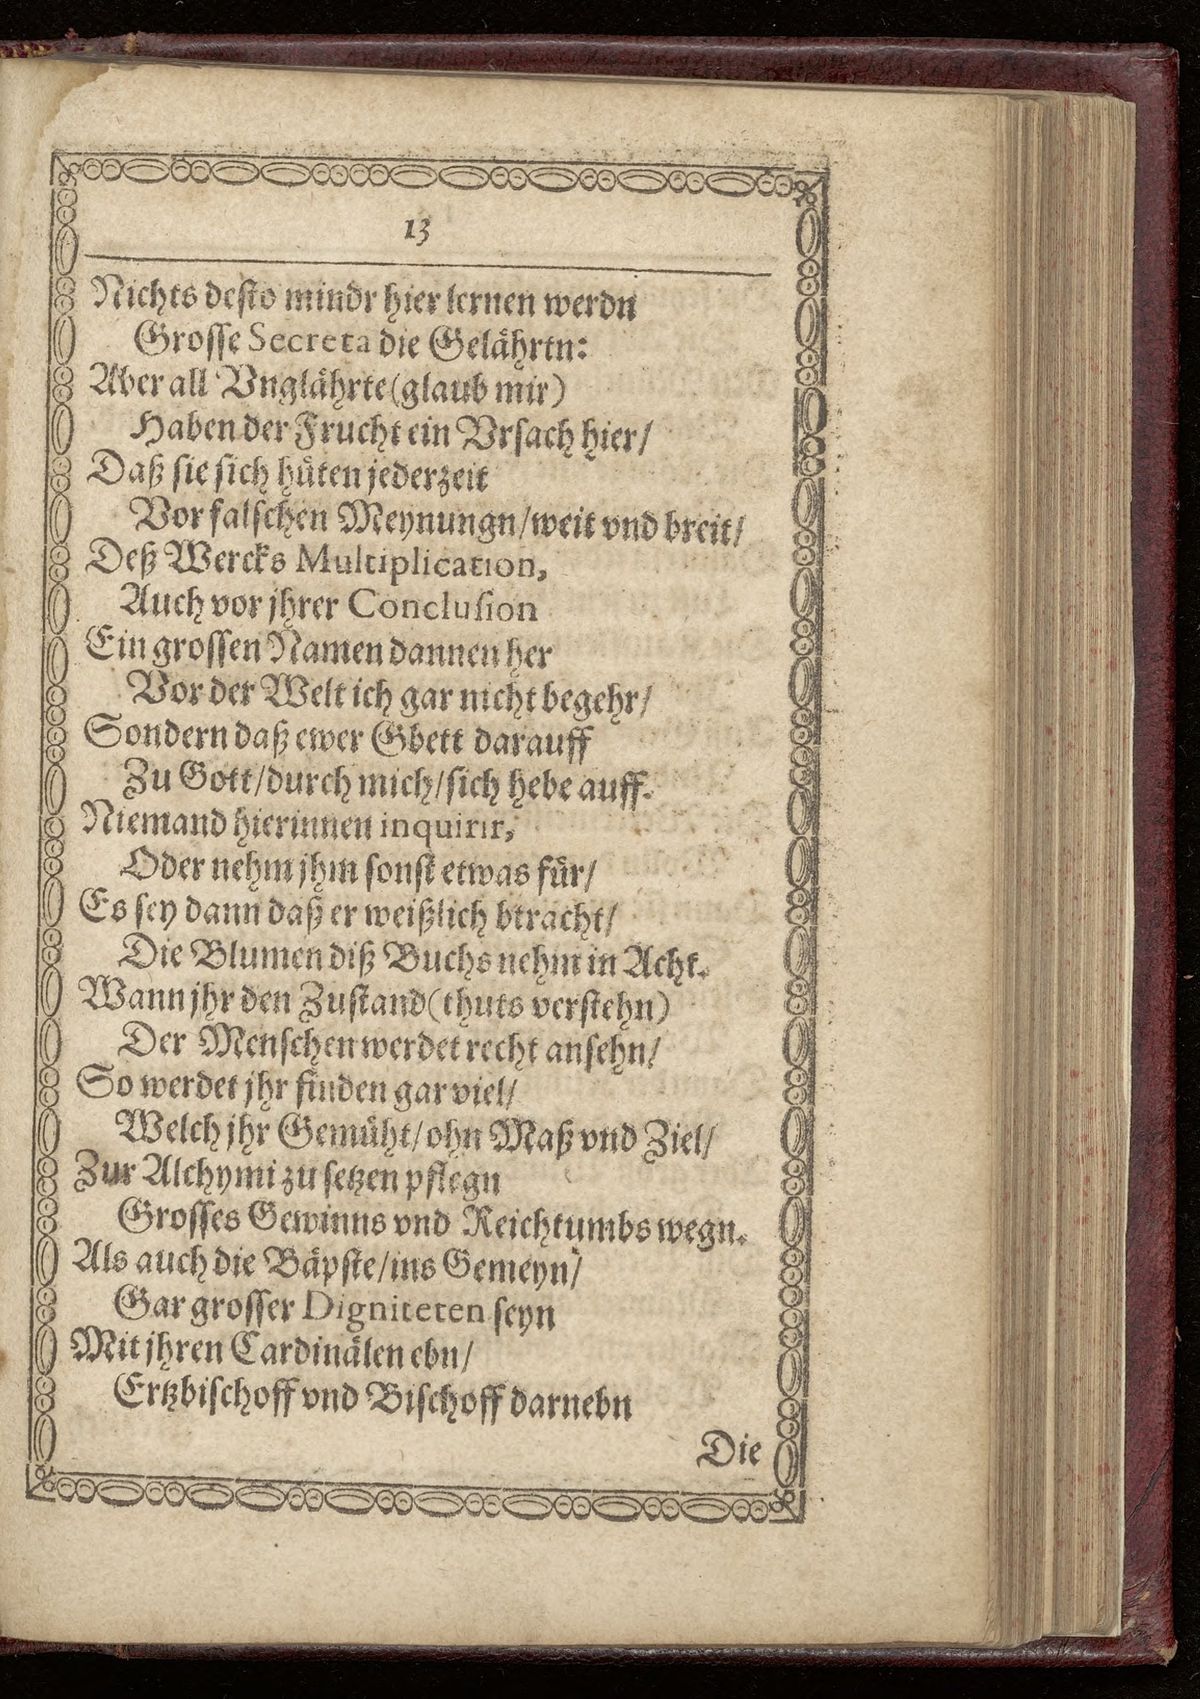 13
Nichts desto mindr hier lernen werdn
Grosse Secreta die Gelährtn:
Aber all Vnglährte (glaub mir)
Haben der Frucht ein Vrsach hier/
Daß sie sich hüten jederzeit
Vor falschen Meynungn/weit vnd breit/
Deß Wercks Multiplication,
Auch vor jhrer Conclusion
Ein grossen Namen dannen her
Vor der Welt ich gar nicht begehr/
Sondern daß ewer Gbett darauff
Zu Gott/durch mich/sich hebe auff.
Niemand hierinnen inquirir,
Oder nehm jhm sonst etwas für/
Es sey dann daß er weißlich btracht/
Die Blumen diß Buchs nehm in Acht.
Wann jhr den Zustand (thuts verstehn)
Der Menschen werdet recht ansehn/
So werdet jhr finden gar viel/
Welch jhr Gemüht/ohn Maß vnd Ziel/
Zur Alchymi zu setzen pflegn
Grosses Gewinns vnd Reichtumbs wegn.
Als auch die Bäpste/ins Gemeyn/
Gar grosser Digniteten seyn
Mit jhren Cardinälen ebn/
Ertzbischoff vnd Bischoff darnebn
Die